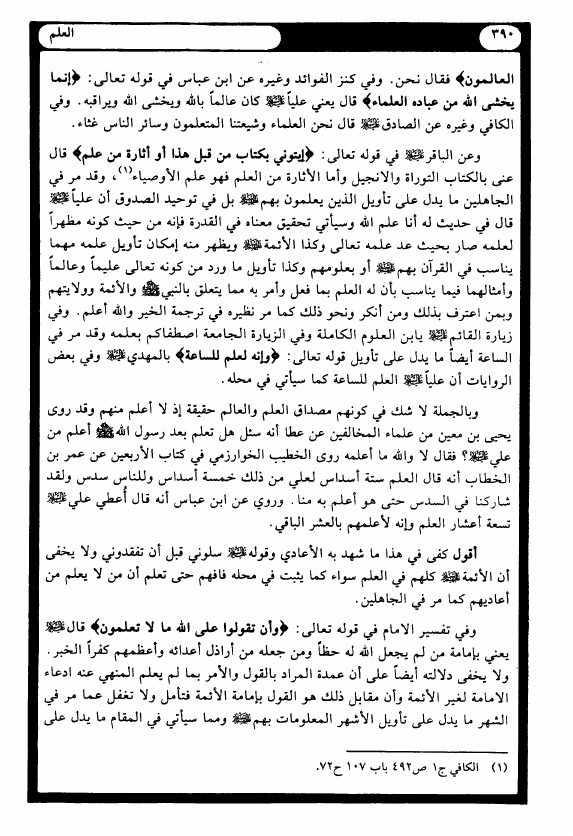 ٣٩٠
العلم
العالمون﴾ فقال نحن. وفي كنز الفوائد وغيره عن ابن عباس في قوله تعالى: ﴿إنما
يخشى الله من عباده العلماء﴾ قال يعني علياً ﷺ كان عالماً بالله ويخشى الله ويراقبه. وفي
الكافي وغيره عن الصادق ﷺ قال نحن العلماء وشيعتنا المتعلمون وسائر الناس غثاء.
وعن الباقر ﷺ في قوله تعالى: ﴿إيتوني بكتاب من قبل هذا أو أثارة من علم﴾ قال
عنى بالكتاب التوراة والانجيل وأما الأثارة من العلم فهو علم الأوصياء(١)، وقد مر في
الجاهلين ما يدل على تأويل الذين يعلمون بهم ﷺ بل في توحيد الصدوق أن علياً ﷺ
قال في حديث له أنا علم الله وسيأتي تحقيق معناه في القدرة فإنه من حيث كونه مظهراً
لعلمه صار بحيث عد علمه تعالى وكذا الأئمة ﷺ ويظهر منه إمكان تأويل علمه مهما
يناسب في القرآن بهم ﷺ أو بعلومهم وكذا تأويل ما ورد من كونه تعالى عليماً وعالماً
وأمثالهما فيما يناسب بأن له العلم بما فعل وأمر به مما يتعلق بالنبي ﷺ والأئمة وولايتهم
وبمن اعترف بذلك ومن أنكر ونحو ذلك كما مر نظيره في ترجمة الخبر والله أعلم. وفي
زيارة القائم ﷺ يابن العلوم الكاملة وفي الزيارة الجامعة اصطفاكم بعلمه وقد مر في
الساعة أيضاً ما يدل على تأويل قوله تعالى: ﴿وإنه لعلم للساعة﴾ بالمهدي ﷺ وفي بعض
الروايات أن علياً ﷺ العلم للساعة كما سيأتي في محله.
وبالجملة لا شك في كونهم مصداق العلم والعالم حقيقة إذ لا أعلم منهم وقد روى
يحيى بن معين من علماء المخالفين عن عطا أنه سئل هل تعلم بعد رسول الله ﷺ أعلم من
علي ﷺ؟ فقال لا والله ما أعلمه روى الخطيب الخوارزمي في كتاب الأربعين عن عمر بن
الخطاب أنه قال العلم ستة أسداس لعلي من ذلك خمسة أسداس وللناس سدس ولقد
شاركنا في السدس حتى هو أعلم به منا. وروي عن ابن عباس أنه قال أُعطي علي ﷺ
تسعة أعشار العلم وإنه لأعلمهم بالعشر الباقي.
أقول كفى في هذا ما شهد به الأعادي وقوله ﷺ سلوني قبل أن تفقدوني ولا يخفى
أن الأئمة ﷺ كلهم في العلم سواء كما يثبت في محله فافهم حتى تعلم أن من لا يعلم من
أعاديهم كما مر في الجاهلين.
وفي تفسير الامام في قوله تعالى: ﴿وأن تقولوا على الله ما لا تعلمون﴾ قال ﷺ
يعني بإمامة من لم يجعل الله له حظاً ومن جعله من أراذل أعدائه وأعظمهم كفراً الخبر.
ولا يخفى دلالته أيضاً على أن عمدة المراد بالقول والأمر بما لم يعلم المنهي عنه ادعاء
الامامة لغير الأئمة وأن مقابل ذلك هو القول بإمامة الأئمة فتأمل ولا تغفل عما مر في
الشهر ما يدل على تأويل الأشهر المعلومات بهم ﷺ ومما سيأتي في المقام ما يدل على
(١) الكافي ج١ ص٤٩٢ باب ١٠٧ ح٧٢.